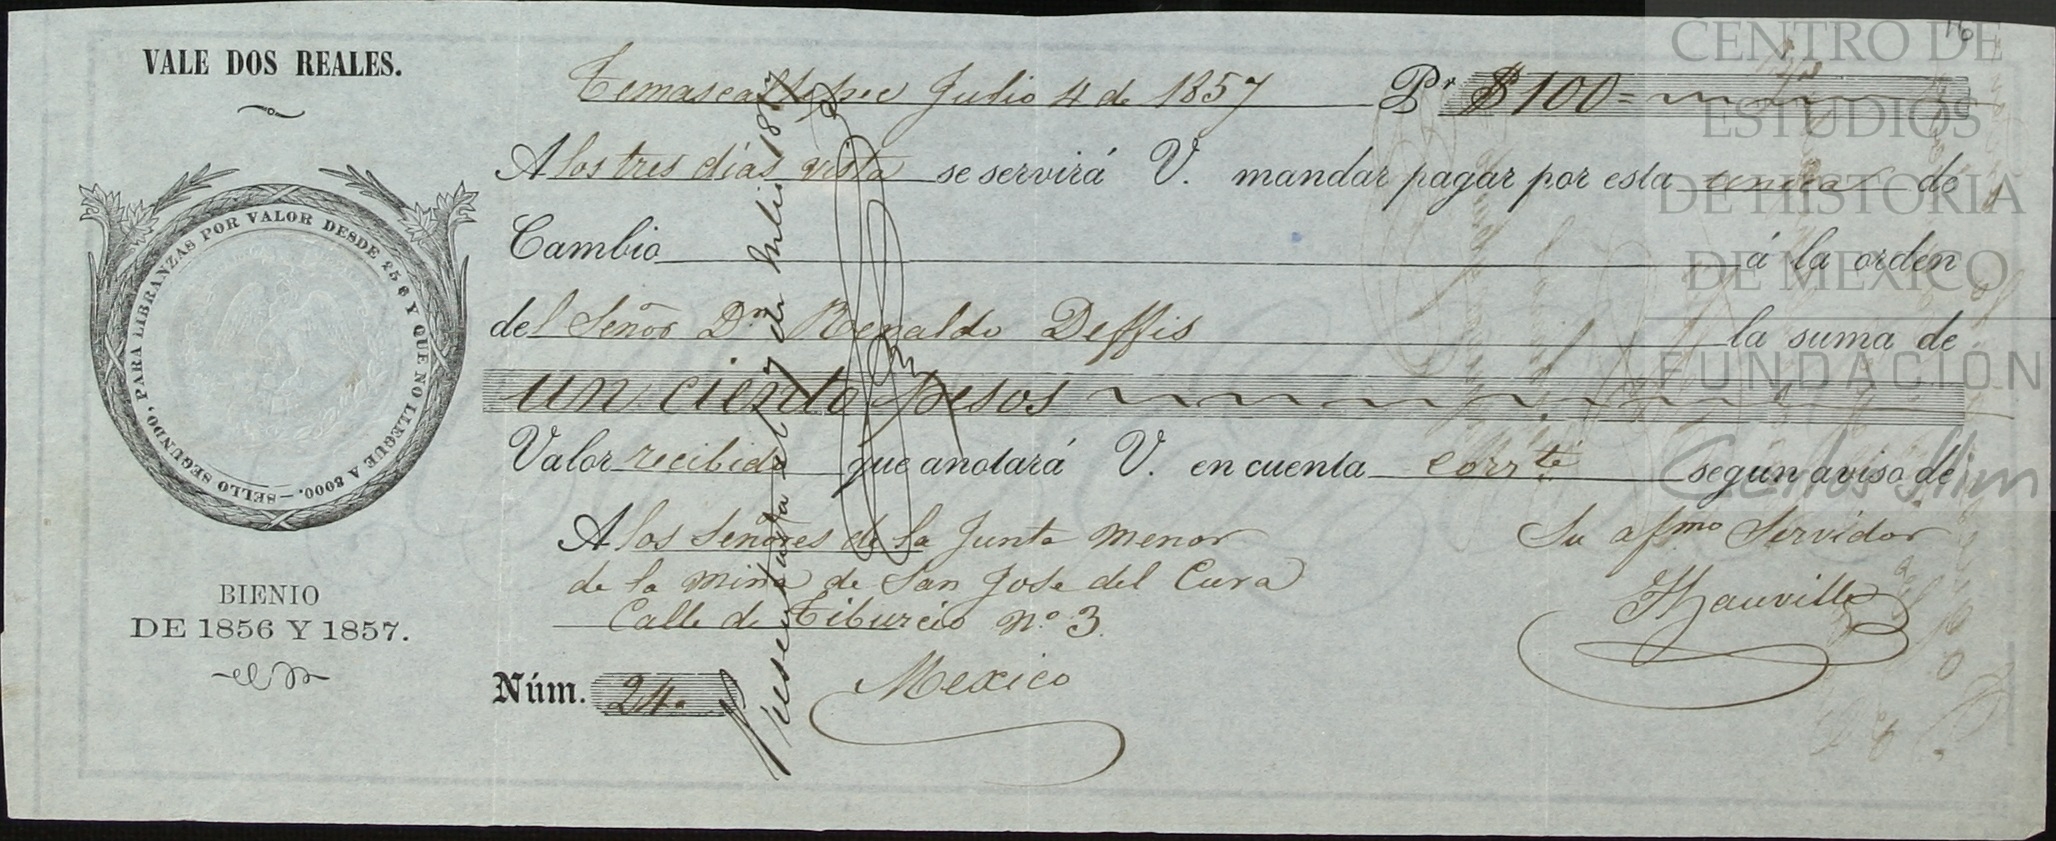 VALE DOS REALES.
SELLO SEGUNDO, PARA LIBRANZAS POR VALOR DESDE 256 Y QUE NO LLEGUE A 3000.—
BIENIO
DE 1856 Y 1857.
Temascaltepec Julio 4 de 1857 Pr $100=
A los tres días vista se servirá V. mandar pagar por esta unica de
Cambio á la orden
del Señor Dn Renaldo Deffis la suma de
un ciento pesos
Valor recibido que anotará V. en cuenta corrte según aviso de
A los Señores de la Junta Menor
de la mina de San Jose del Cura
Calle de Tiburcio No 3.
Mexico
Su afmo Servidor
Núm. 24.
Presentada el 7 de Julio 1857
16
CENTRO DE
ESTUDIOS
DE HISTORIA
DE MEXICO
FUNDACIÓN
Carlos Slim